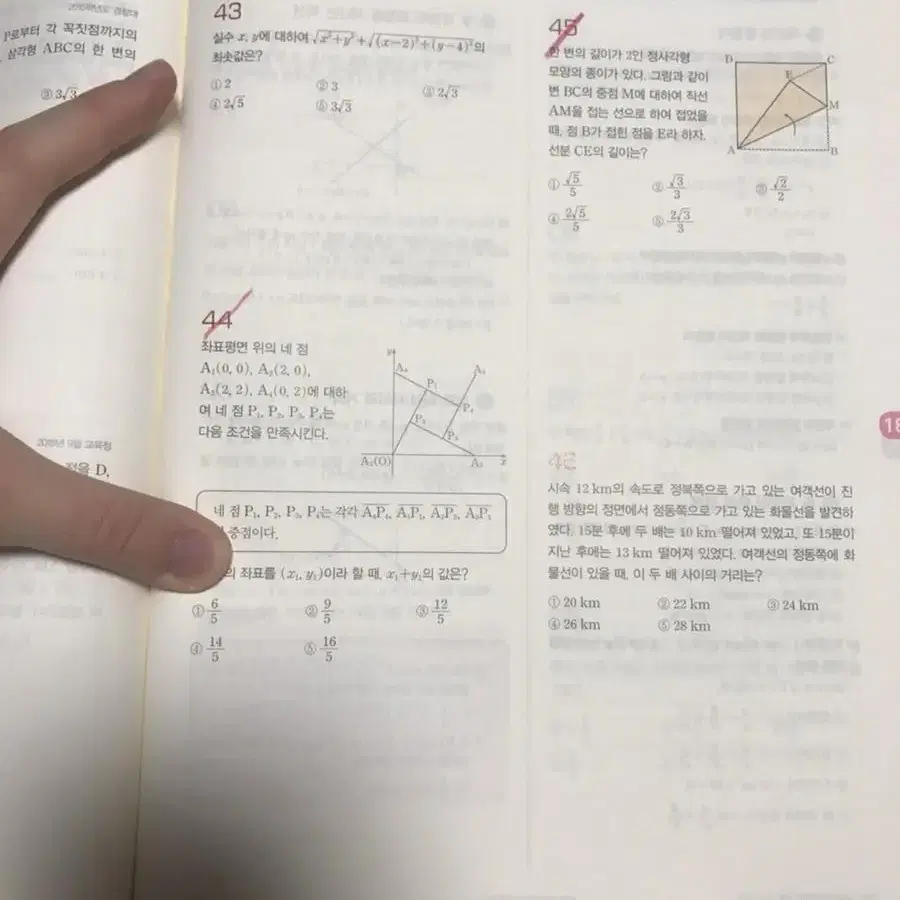 2016학년도 경찰대
P로부터 각 꼭짓점까지의
삼각형 ABC의 한 변의
③ 3√3
2018년 9월 교육청
점을 D,
43
실수 x, y에 대하여 √(x²+y²)+√((x-2)²+(y-4)²)의
최솟값은?
① 2 ② 3 ③ 2√3
④ 2√5 ⑤ 3√3
44
좌표평면 위의 네 점
A₁(0, 0), A₂(2, 0),
A₃(2, 2), A₄(0, 2)에 대하
여 네 점 P₁, P₂, P₃, P₄는
다음 조건을 만족시킨다.
y
A₄ A₃
P₁
P₄
P₂
P₃
A₁(O) A₂ x
네 점 P₁, P₂, P₃, P₄는 각각
중점이다.
의 좌표를 (x₁, y₁)이라 할 때, x₁+y₁의 값은?
① 6/5 ② 9/5 ③ 12/5
④ 14/5 ⑤ 16/5
45
한 변의 길이가 2인 정사각형
모양의 종이가 있다. 그림과 같이
변 BC의 중점 M에 대하여 직선
AM을 접는 선으로 하여 접었을
때, 점 B가 접힌 점을 E라 하자.
선분 CE의 길이는?
D C
E
M
A B
① √5/5 ② √3/3 ③ √2/2
④ 2√5/5 ⑤ 2√3/3
시속 12 km의 속도로 정북쪽으로 가고 있는 여객선이 진
행 방향의 정면에서 정동쪽으로 가고 있는 화물선을 발견하
였다. 15분 후에 두 배는 10 km 떨어져 있었고, 또 15분이
지난 후에는 13 km 떨어져 있었다. 여객선의 정동쪽에 화
물선이 있을 때, 이 두 배 사이의 거리는?
① 20 km ② 22 km ③ 24 km
④ 26 km ⑤ 28 km
18